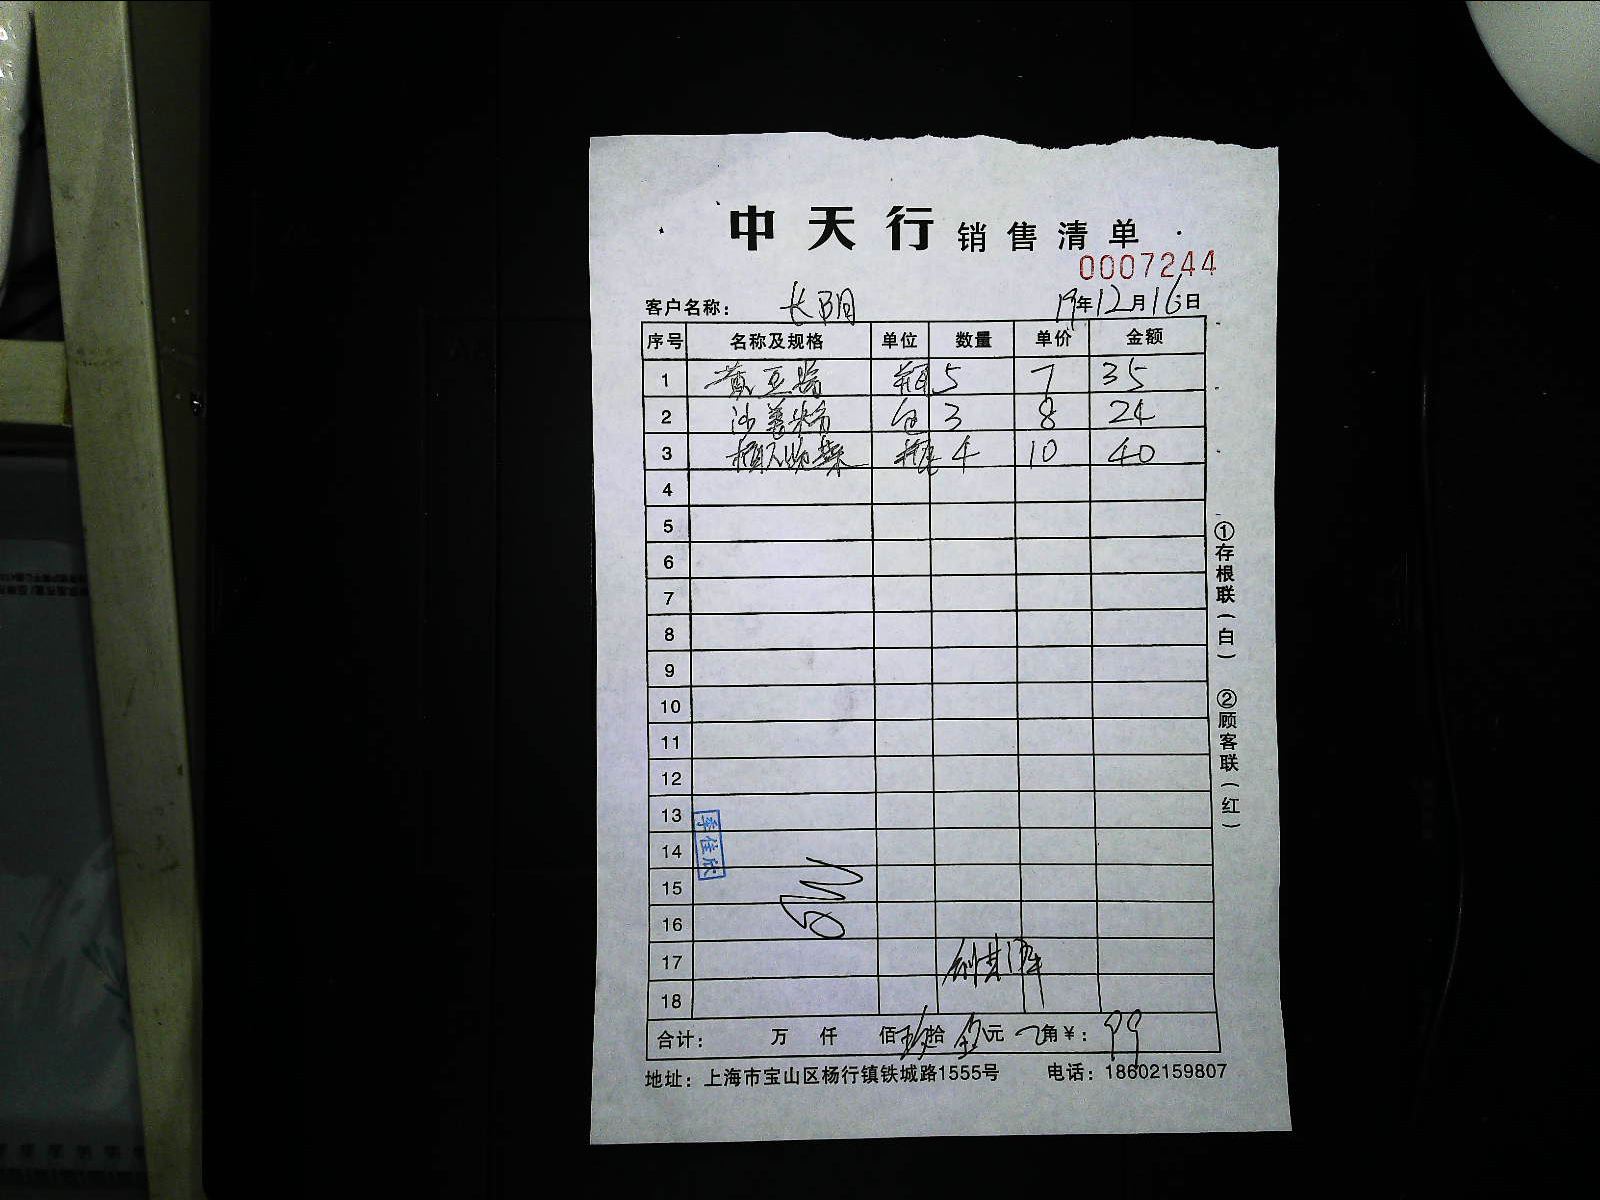 中天行 销售清单
0007244
客户名称： 长阳 19年12月16日
序号 名称及规格 单位 数量 单价 金额
1 黄豆酱 瓶 5 7 35
2 沙姜粉 包 3 8 24
3 4 10 40
4
5
6
7
8
9
10
11
12
13
14
15
16
17
18
李佳欣
合计： 万 仟 佰 玖拾 元 角￥： 99
地址：上海市宝山区杨行镇铁城路1555号 电话：18602159807
①存根联（白） ②顾客联（红）